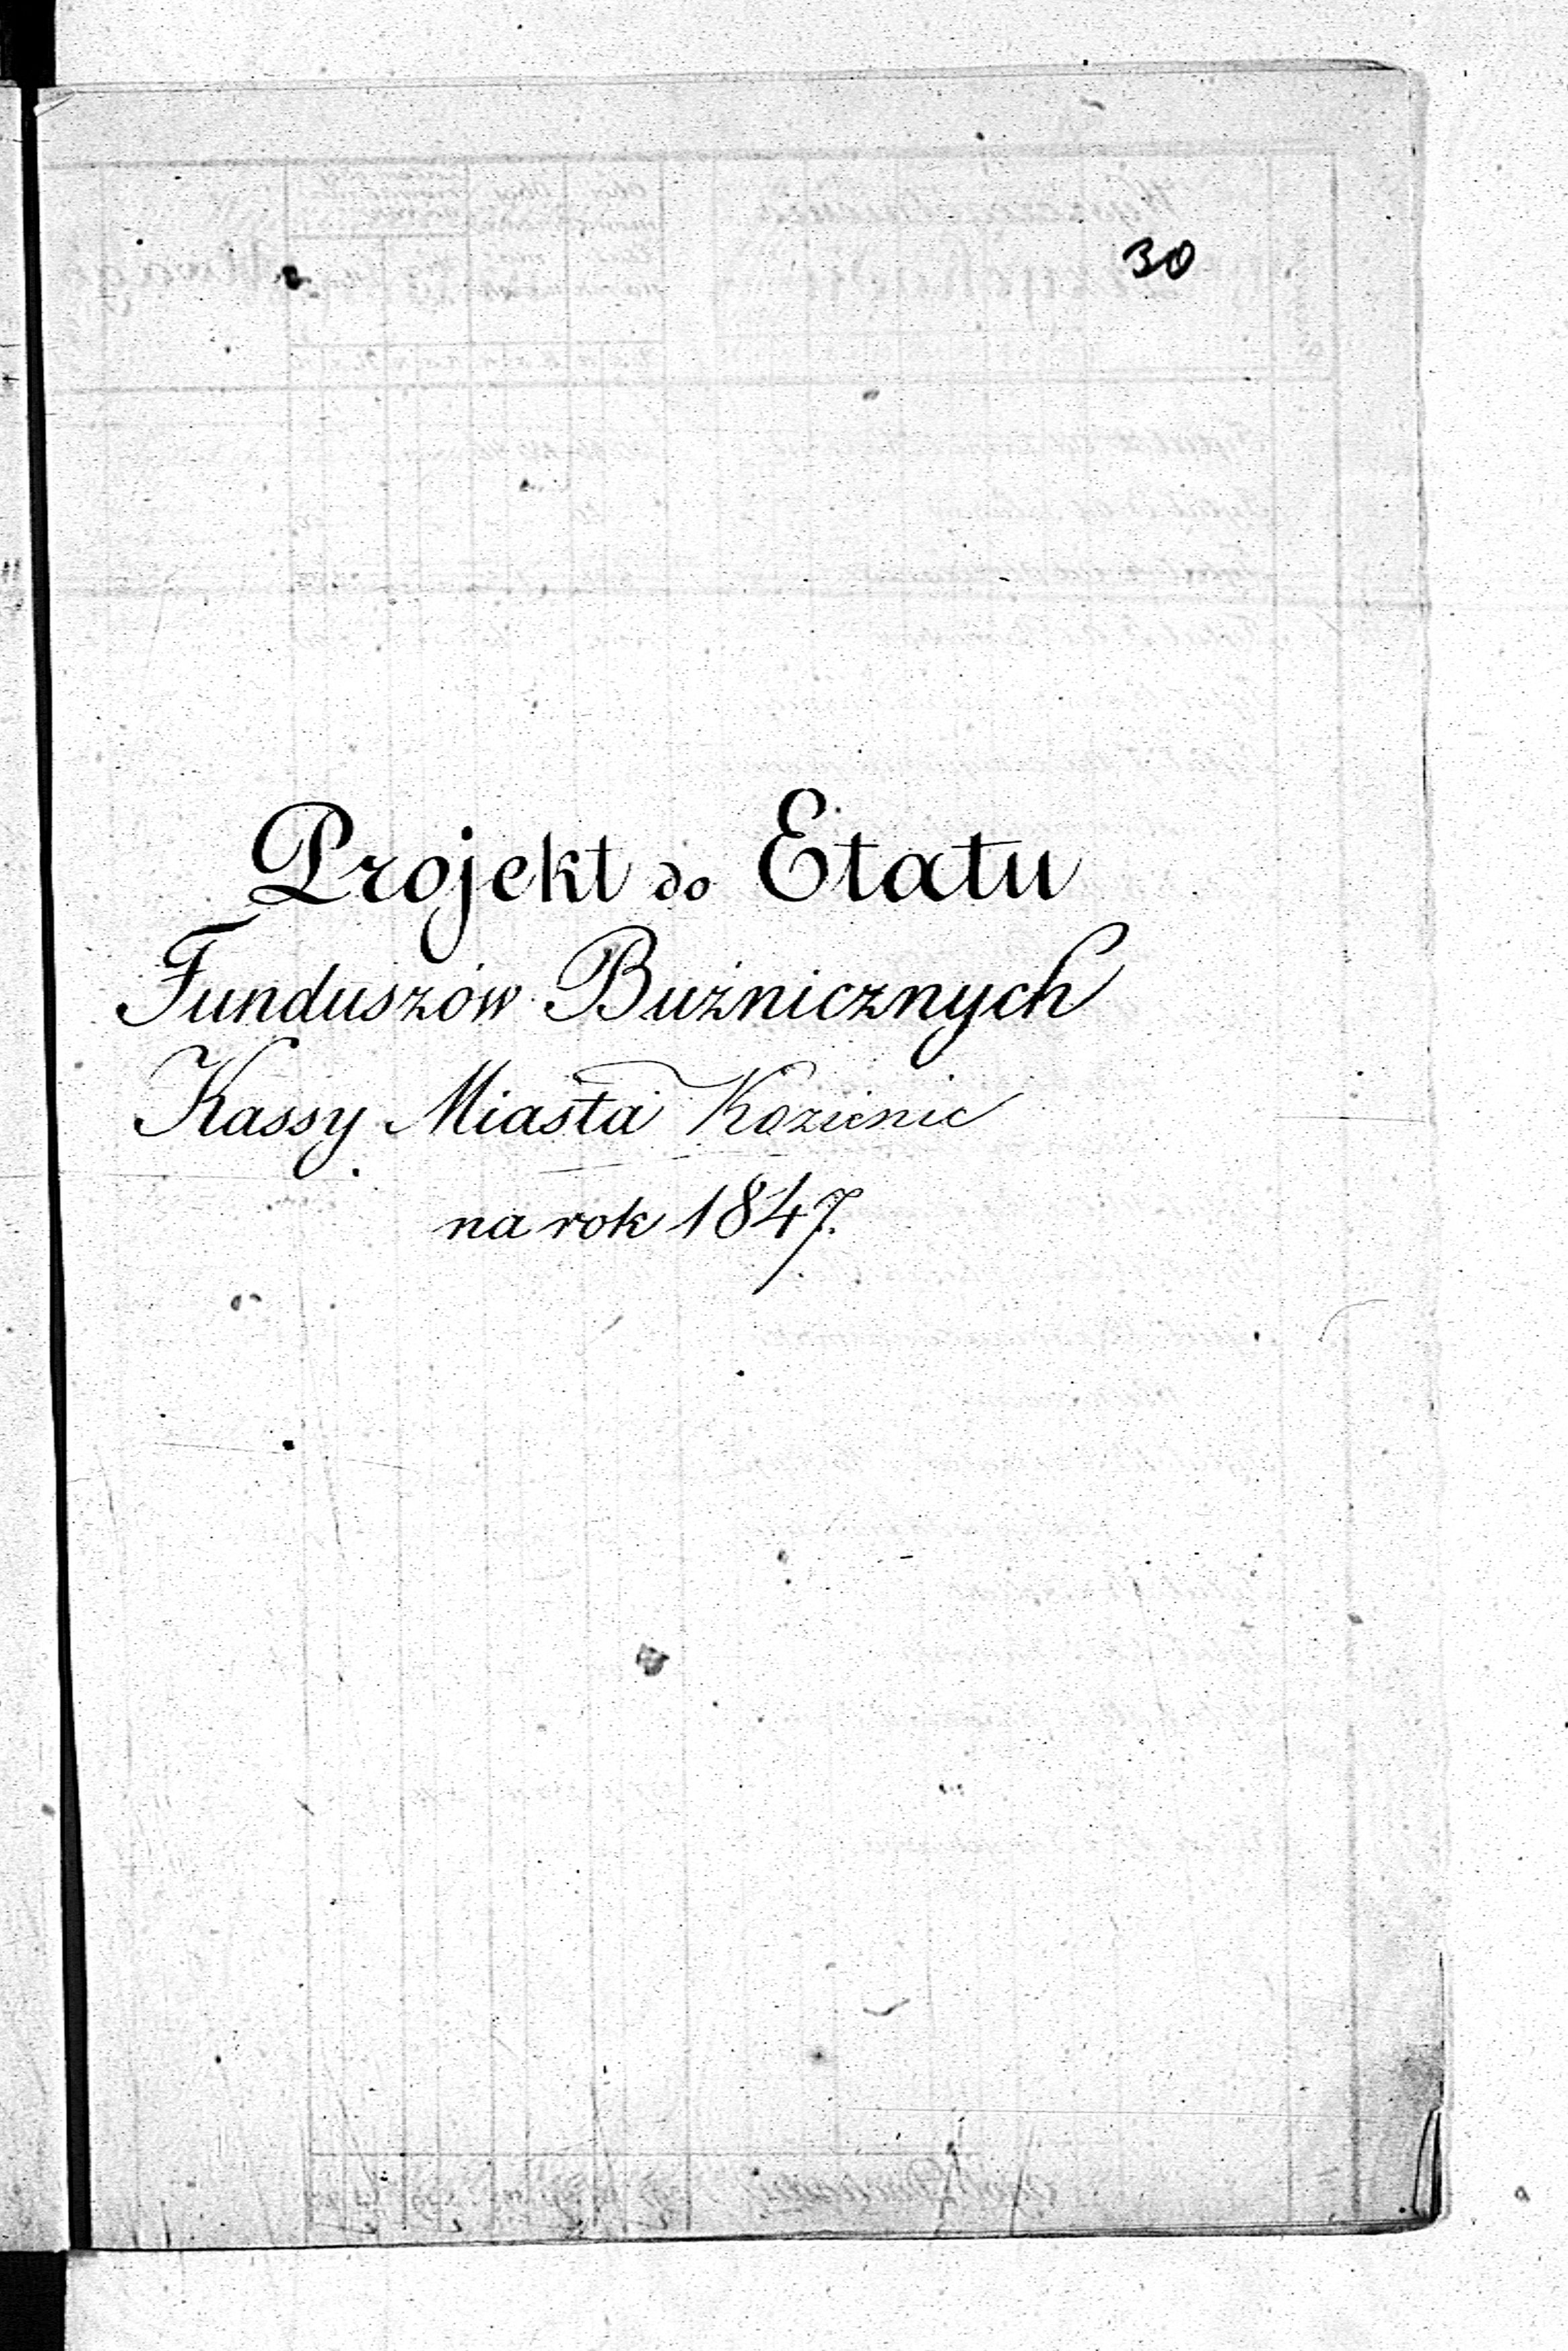 30
Projekt do Etatu
Funduszów Bużnicznych
Kassy Miasta Kozienic
na rok 1847.